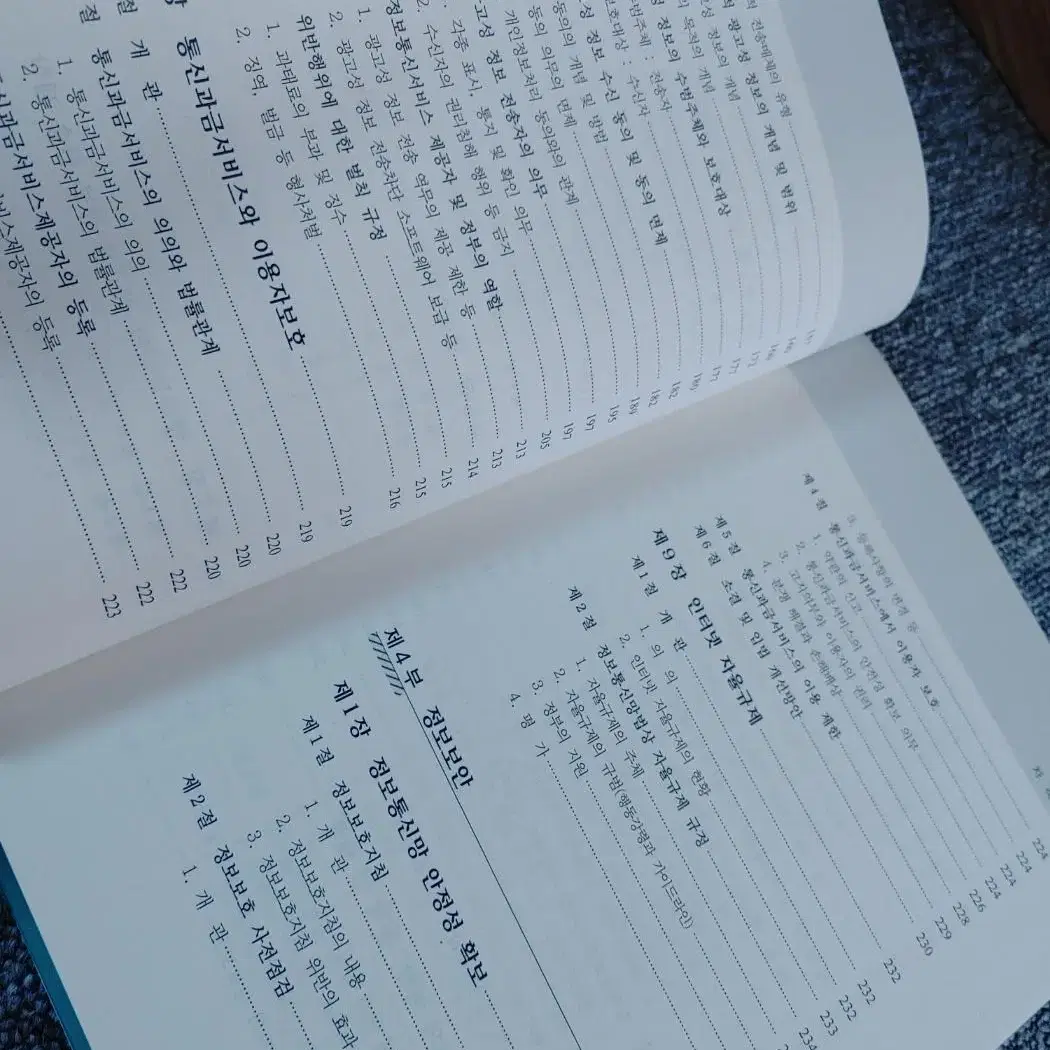 전송매체의 유형
광고성 정보의 개념 및 범위
성 정보의 개념
의 목적의 개념
정보의 수범주체와 보호대상
수범주체 : 전송자
보호대상 : 수신자
성 정보 수신 동의 및 동의 면제
동의의 개념 및 방법
동의 의무의 면제
개인정보처리 동의와의 관계 197
고성 정보 전송자의 의무 197
각종 표시, 통지 및 확인 의무
2. 수신자의 권리침해 행위 등 금지
정보통신서비스 제공자 및 정부의 역할 213
1. 광고성 정보 전송 역무의 제공 제한 등
2. 광고성 정보 전송차단 소프트웨어 보급 등
위반행위에 대한 벌칙 규정 215
1. 과태료의 부과 및 징수 215
2. 징역, 벌금 등 형사처벌 216
통신과금서비스와 이용자보호 219
절 개 관 219
절 통신과금서비스의 의의와 법률관계 220
1. 통신과금서비스의 의의 220
2. 통신과금서비스의 법률관계 220
신과금서비스제공자의 등록 222
비스제공자의 등록 222
223
제4절 통신과금서비스에서 이용자 보호 224
1. 약관의 신고 224
2. 통신과금서비스의 안전성 확보 의무 224
3. 고지의무와 이용자의 권리
4. 분쟁 해결과 손해배상
제5절 통신과금서비스의 이용 제한
제6절 소결 및 입법 개선방안
제9장 인터넷 자율규제 232
제1절 개 관 232
1. 의 의 232
2. 인터넷 자율규제의 현황
제2절 정보통신망법상 자율규제 규정
1. 자율규제의 주체
2. 자율규제의 규범(행동강령과 가이드라인)
3. 정부의 지원
4. 평 가
제4부 정보보안
제1장 정보통신망 안정성 확보
제1절 정보보호지침
1. 개 관
2. 정보보호지침의 내용
3. 정보보호지침 위반의 효과
제2절 정보보호 사전점검
1. 개 관